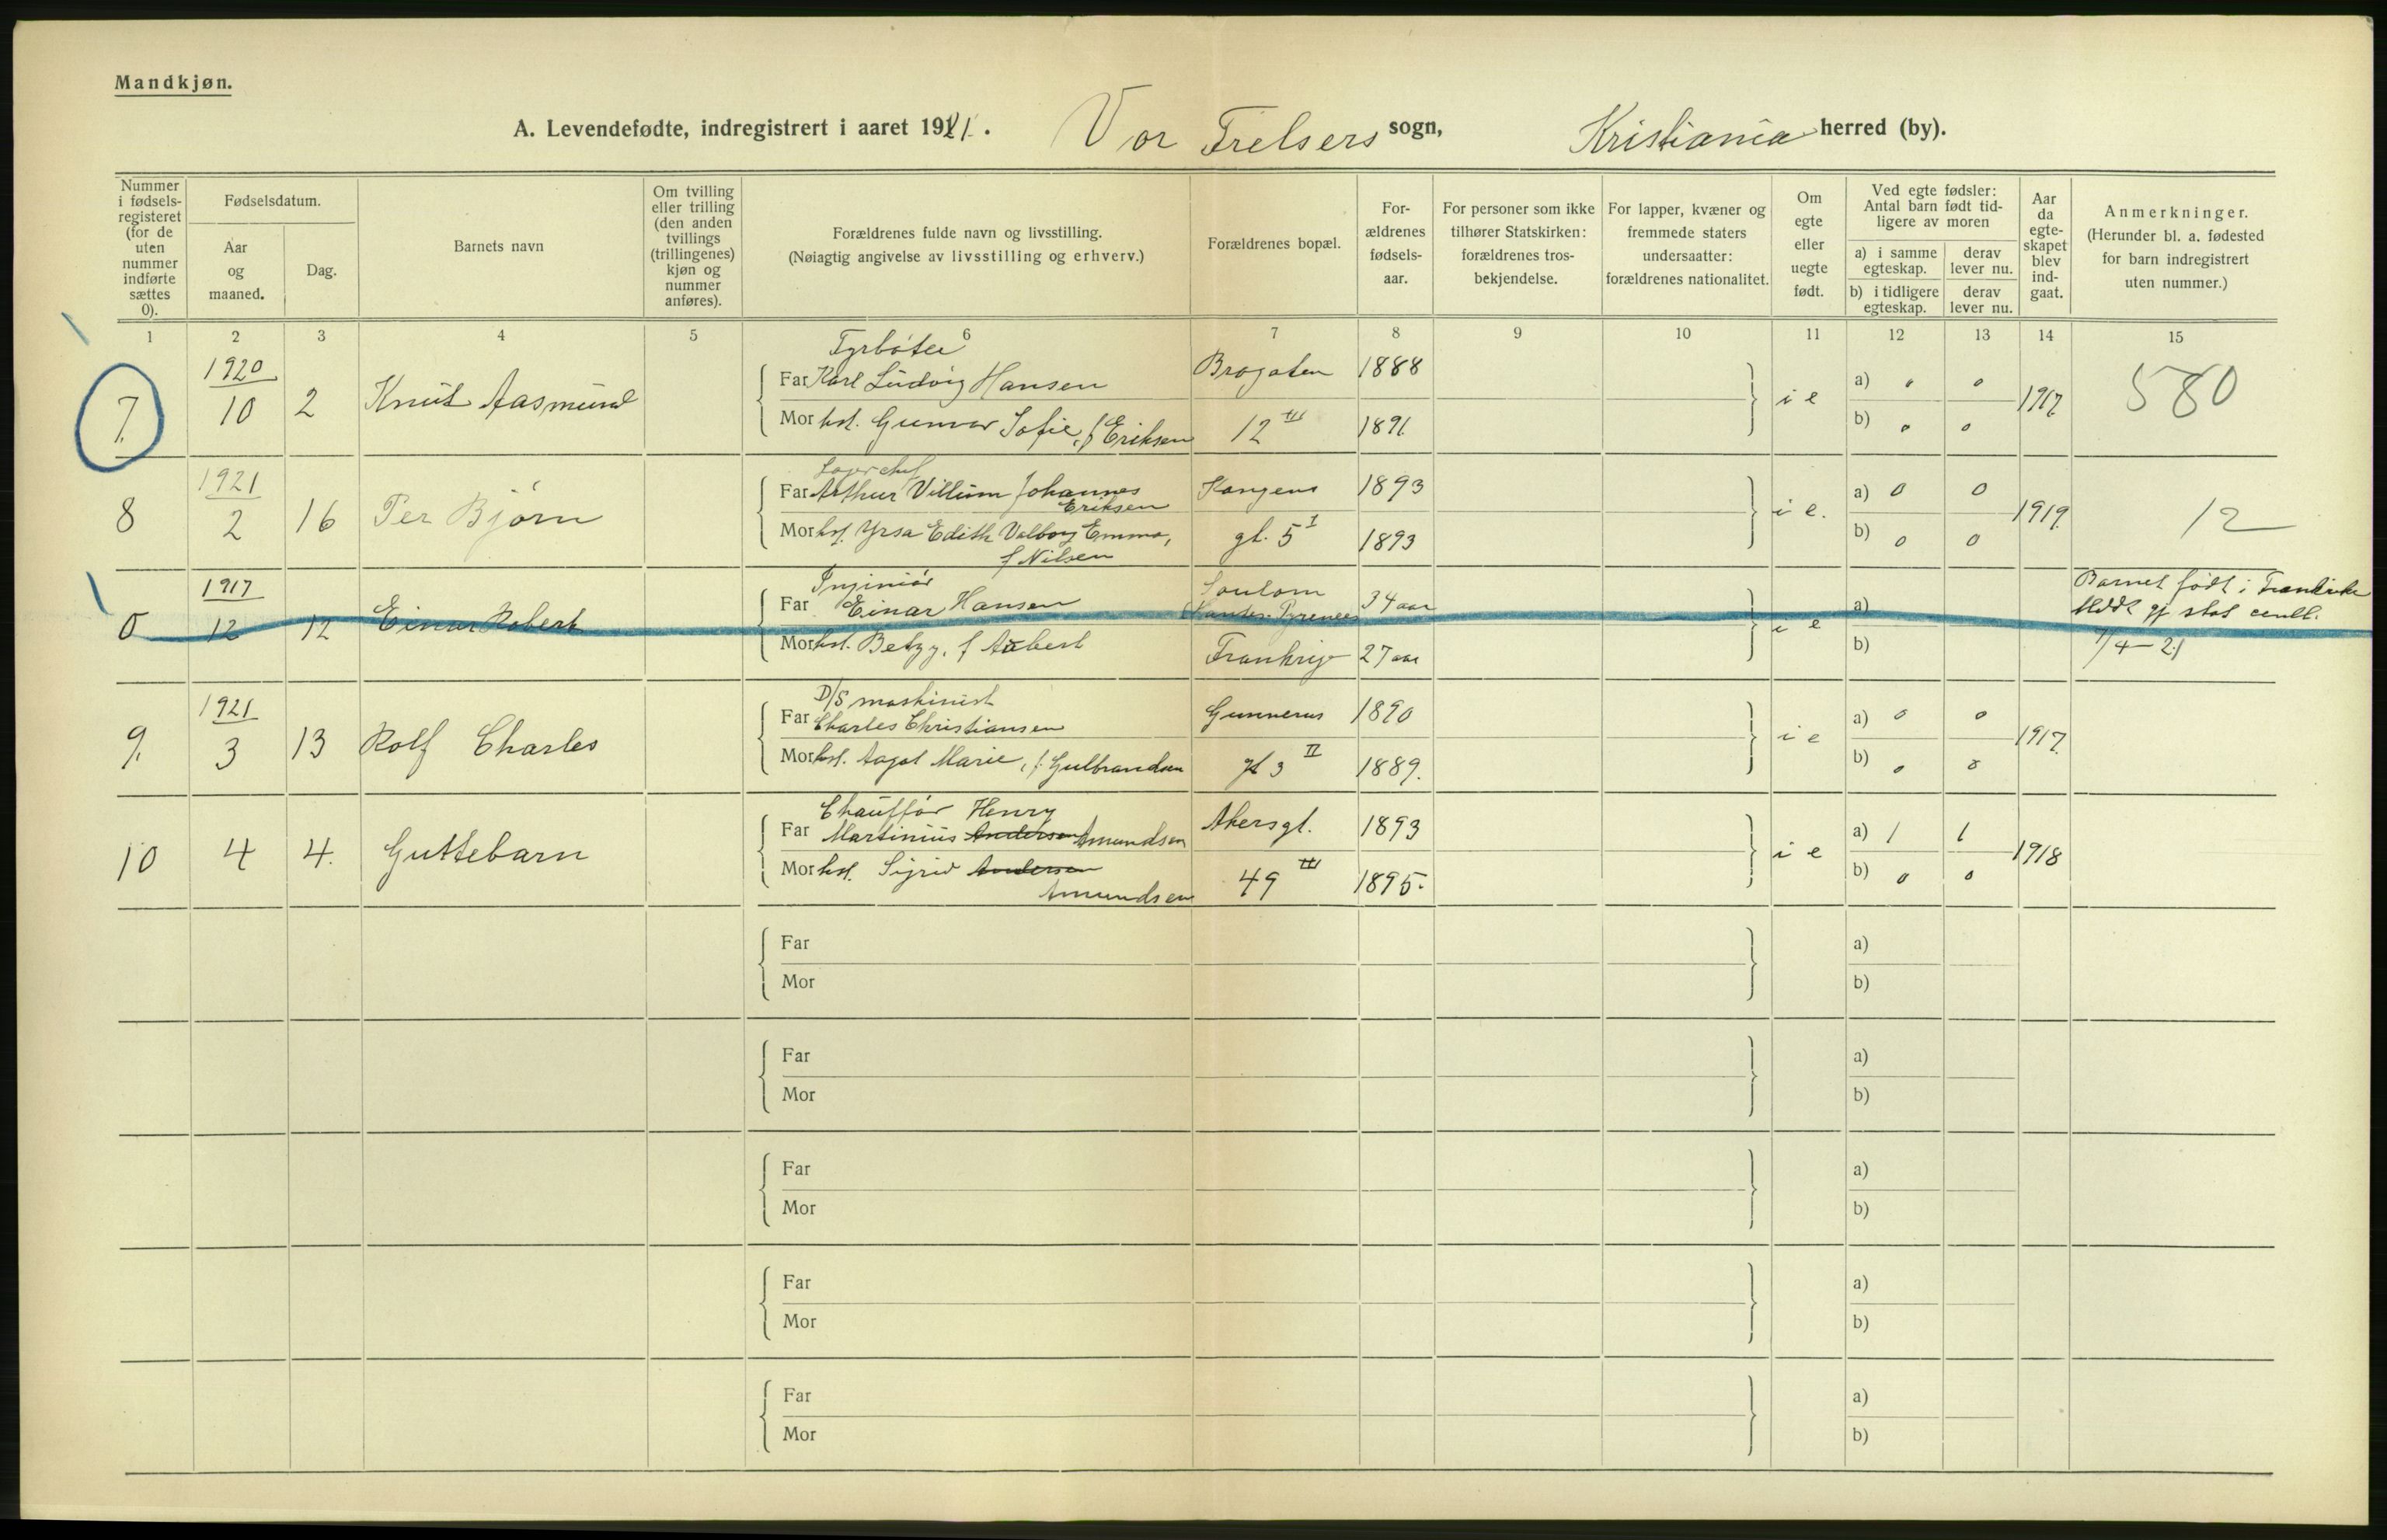 Mandkjøn.
A. Levendefødte, indregistrert i aaret 1921. Vor Frelsers sogn, Kristiania herred (by).
Nummer i fødsels-registeret (for de uten nummer indførte sættes 0).
Fødselsdatum.
Aar og maaned.
Dag.
Barnets navn
Om tvilling eller trilling (den anden tvillings (trillingenes) kjøn og nummer anføres).
Forældrenes fulde navn og livsstilling.
(Nøiagtig angivelse av livsstilling og erhverv.)
Forældrenes bopæl.
For-ældrenes fødsels-aar.
For personer som ikke tilhører Statskirken: forældrenes tros-bekjendelse.
For lapper, kvæner og fremmede staters undersaatter: forældrenes nationalitet.
Om egte eller uegte født.
Ved egte fødsler: Antal barn født tid-ligere av moren
a) i samme egteskap.
derav lever nu.
b) i tidligere egteskap.
derav lever nu.
Aar da egte-skapet blev ind-gaat.
Anmerkninger.
(Herunder bl. a. fødested for barn indregistrert uten nummer.)
1 2 3 4 5 6 7 8 9 10 11 12 13 14 15
Fyrbøter
7. 1920 10 2 Knut Aasmund Far Karl Ludvig Hansen Brogaten 1888 i e a) 0 0 1917. 580
Mor hst. Gunvor Sofie, f Eriksen 12 III 1891. b) 0 0
Lagerchef
8 1921 2 16 Per Bjørn Far Arthur Villum Johannes Eriksen Kongens 1893 i e. a) 0 0 1919. 12
Mor hst. Yrsa Edith Valborg Emma, f Nilsen gt. 5 I 1893 b) 0 0
Ingeniør
0 1917 12 12 Einar Robert Far Einar Hansen Soulom Pyrenees 34 aar i e a) Barnet født i
Mor hst. Betzy, f Frankrig 27 aar b) 7/4-21
D/S maskinist
9. 1921 3 13 Rolf Charles Far Charles Christiansen Gunnerus 1890 i e a) 0 0 1917.
Mor hst. Aagot Marie, f. Gulbrandsen gt 3 II 1889. b) 0 0
Chauffør Henry
10 4 4. Guttebarn Far Martinius Andersen Amundsen Akersgt. 1893 i e a) 1 1 1918
Mor hst. Sigrid Andersen Amundsen 49 III 1895. b) 0 0
Far a)
Mor b)
Far a)
Mor b)
Far a)
Mor b)
Far a)
Mor b)
Far a)
Mor b)